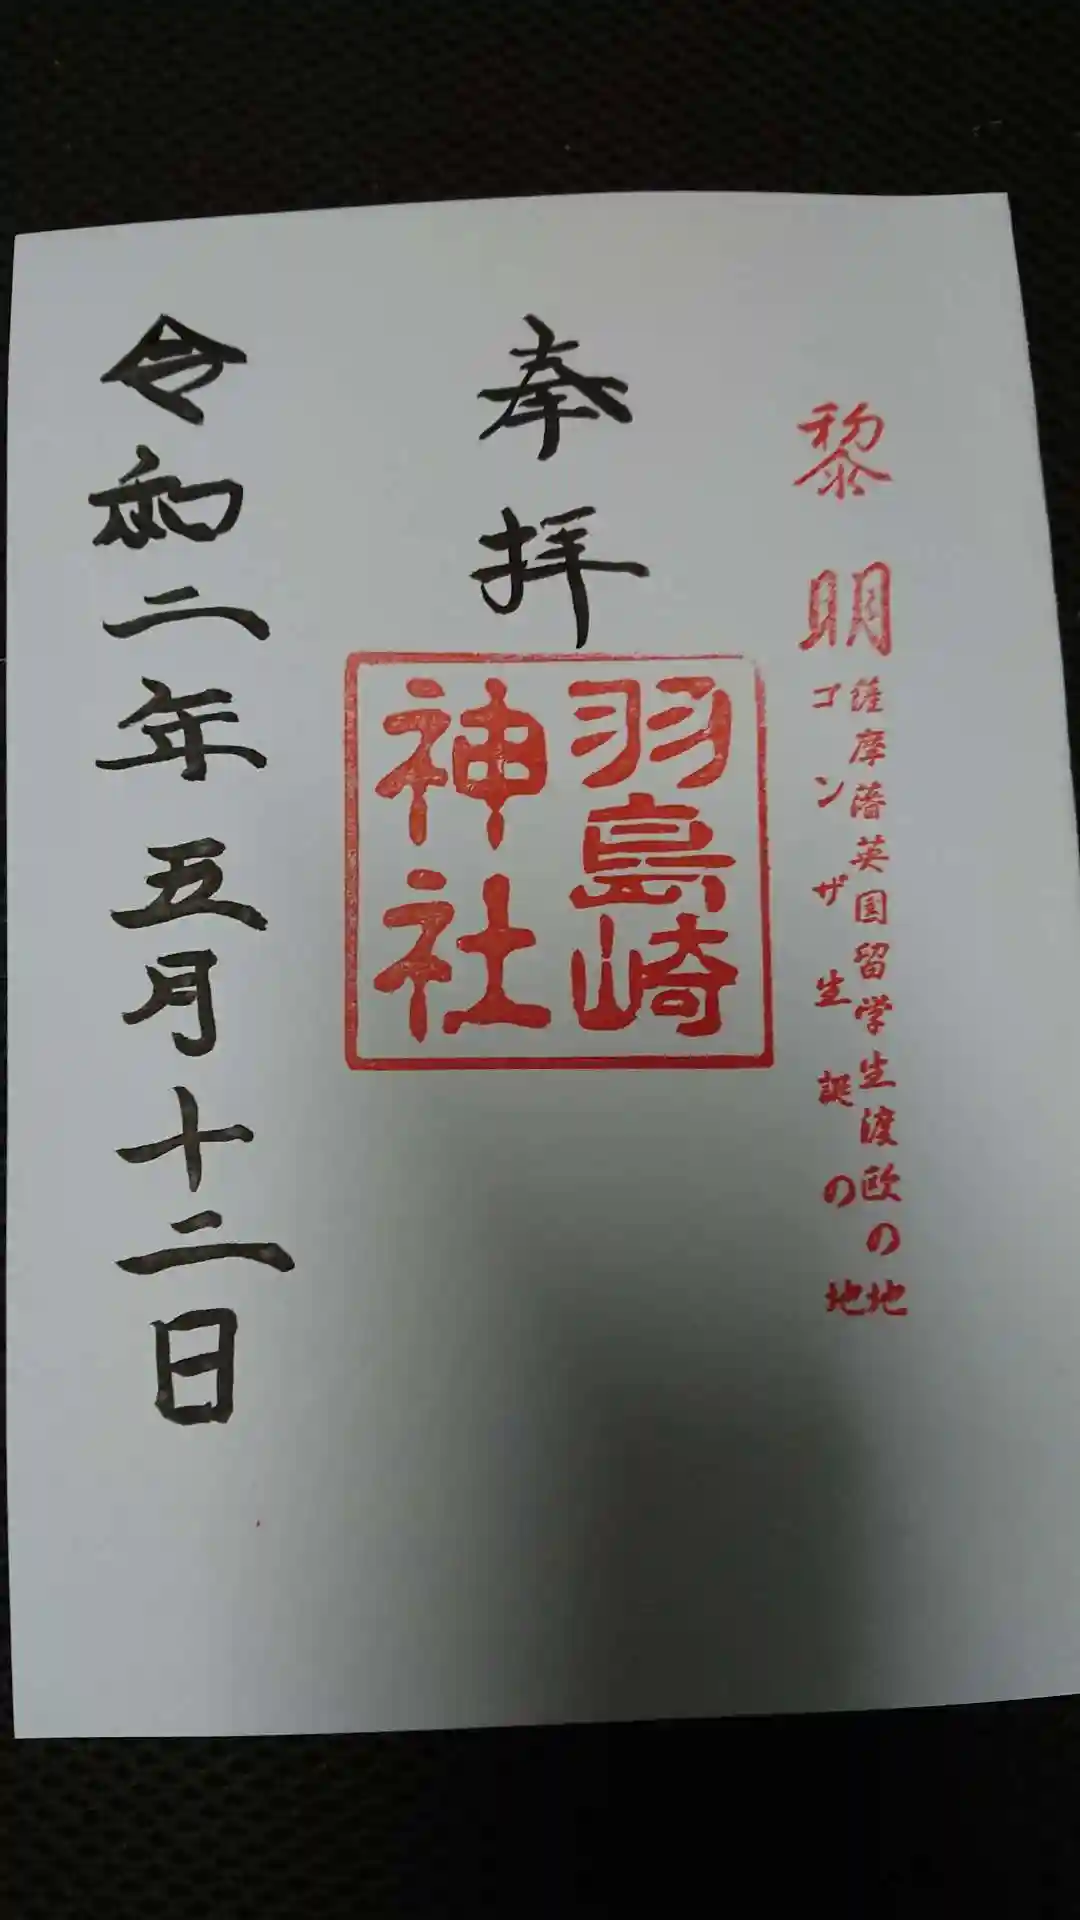 黎明
薩摩藩英国留学生渡欧の地
ゴンザ生誕の地
奉拝
羽島崎
神社
令和二年五月十二日